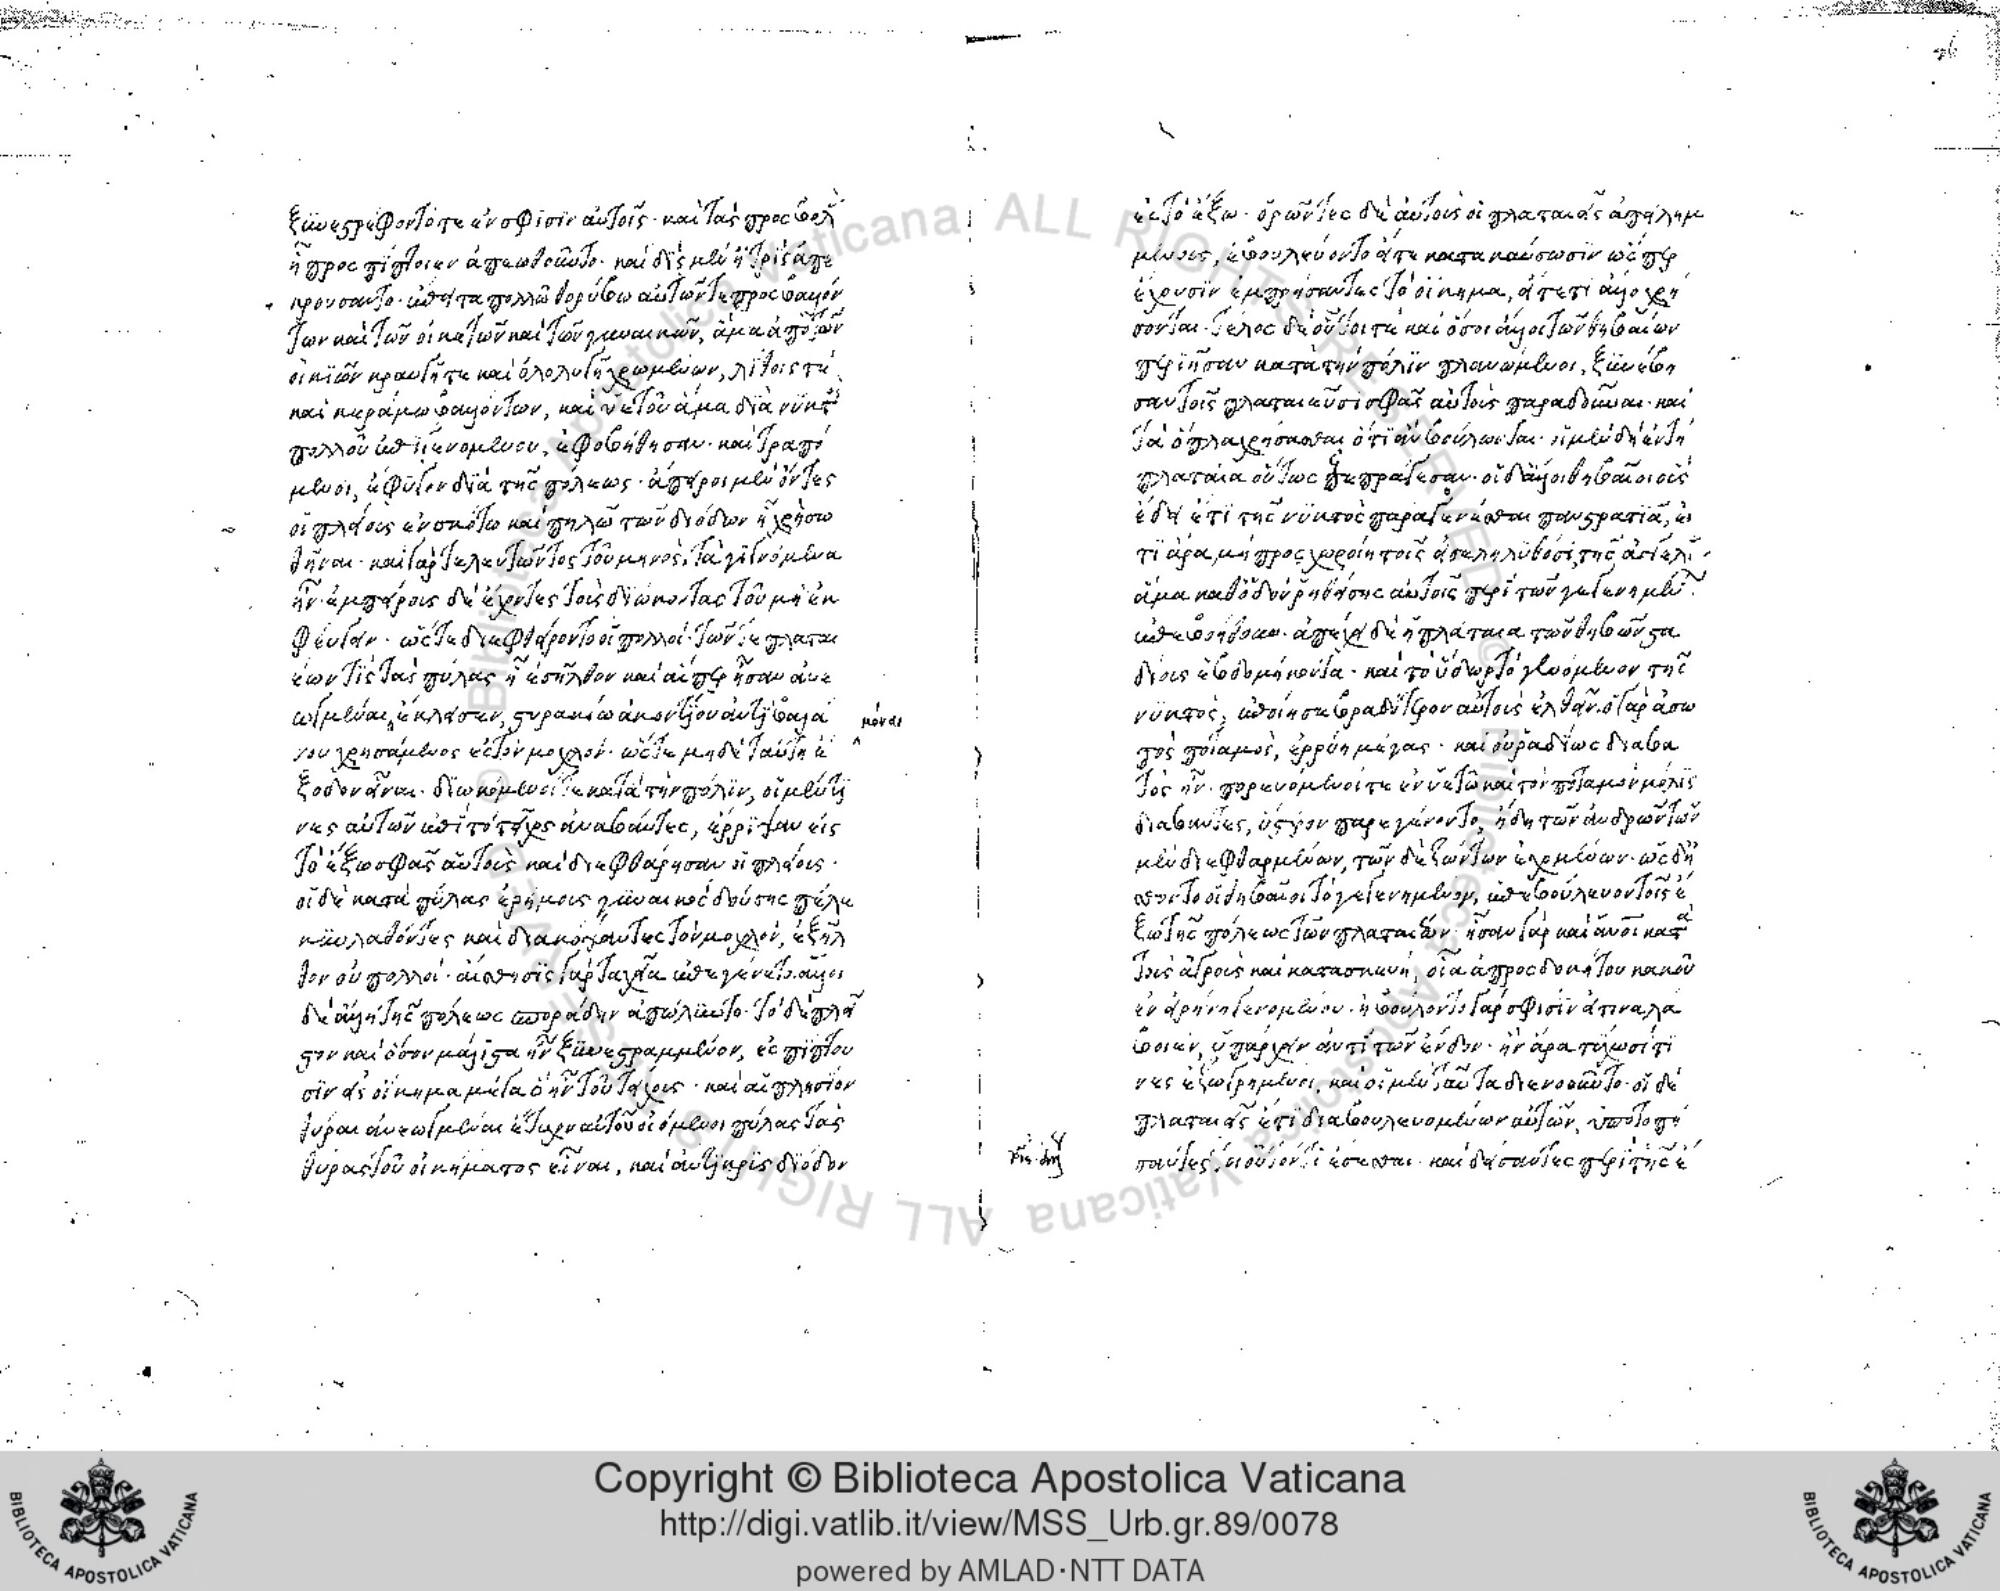 ξυνεστρέφοντό τε ἐν σφίσιν αὐτοῖς· καὶ τὰς προσβολ
ᾗ προσπίπτοιεν ἀπεωθοῦντο· καὶ δὶς μὲν ἢ τρὶς ἀπε
κρούσαντο· ἔπειτα πολλῶ θορύβω αὐτῶν τε προσβαλόν
των καὶ τῶν οἰκετῶν καὶ τῶν γυναικῶν, ἅμα ἀπὸ τῶν
οἰκιῶν κραυγῆ τε καὶ ὀλολυγῆ χρωμένων, λίθοις τε
καὶ κεράμω βαλόντων, καὶ ὑετοῦ ἅμα διὰ νυκτ
πολλοῦ ἐπιγενομένου, ἐφοβήθησαν· καὶ τραπό
μενοι, ἔφυγον διὰ τῆς πόλεως· ἄπειροι μὲν ὄντες
οἱ πλείους ἐν σκότω καὶ πηλῶ τῶν διόδων ᾗ χρὴ σω
θῆναι· καὶ γὰρ τελευτῶντος τοῦ μηνὸς, τὰ γιγνόμενα
ἦν· ἐμπείρους δὲ ἔχοντες τοὺς διώκοντας τοῦ μὴ ἐκ
φεύγειν· ὥστε διεφθείροντο οἱ πολλοί· τῶν τε πλαται
έων τὶς τὰς πύλας ᾗ ἐσῆλθον καὶ αἵπερ ἦσαν ἀνε
ωγμέναι, ἔκλησεν, στυρακίω ἀκοντίου ἀντὶ βαλά
μόναι
νου χρησάμενος ἐς τὸν μοχλόν· ὥστε μηδὲ ταύτη ἔ
ξοδον εἶναι· διωκόμενοί τε κατὰ τὴν πόλιν, οἱ μέν τι
νες αὐτῶν ἐπὶ τὸ τεῖχος ἀναβάντες, ἔρριψαν εἰς
τὸ ἔξω σφᾶς αὐτοὺς καὶ διεφθάρησαν οἱ πλείους·
οἱ δὲ κατὰ πύλας ἐρήμους γυναικὸς δούσης πέλε
κυν λαθόντες καὶ διακόψαντες τὸν μοχλὸν, ἐξῆλ
θον οὐ πολλοί· αἴσθησις γὰρ ταχεῖα ἐπεγένετο. ἄλλοι
δὲ ἄλλη τῆς πόλεως σποράδην ἀπώλλυντο· τὸ δὲ πλεῖ
στον καὶ ὅσον μάλιστα ἦν ξυνεστραμμένον, ἐσπίπτου
σιν ἐς οἴκημα μέγα ὃ ἦν τοῦ τείχους· καὶ αἱ πλησίον
θύραι ἀνεωγμέναι ἔτυχον αὐτοῦ οἰόμενοι πύλας τὰς
θύρας τοῦ οἰκήματος εἶναι, καὶ ἀντικρὺς δίοδον
ἐς τὸ ἔξω· ὁρῶντες δὲ αὐτοὺς οἱ πλαταιεῖς ἀπειλημ
μένους, ἐβουλεύοντο εἴτε κατακαύσωσιν ὥσπερ
ἔχουσιν ἐμπρήσαντες τὸ οἴκημα, εἴτε τὶ ἄλλο χρή
σονται· τέλος δὲ οὗτοί τε καὶ ὅσοι ἄλλοι τῶν θηβαίων
περιῆσαν κατὰ τὴν πόλιν πλανώμενοι, ξυνέβη
σαν τοῖς πλαταιεῦσι σφᾶς αὐτοὺς παραδοῦναι· καὶ
τὰ ὅπλα χρήσασθαι ὅτι ἂν βούλωνται· οἱ μὲν δὴ ἐν τῆ
πλαταία οὕτως ἐπεπράγεσαν· οἱ δ' ἄλλοι θηβαῖοι οὓς
ἔδει ἔτι τῆς νυκτὸς παραγενέσθαι πανστρατιᾶ, εἴ
τι ἄρα μὴ προσχωροίη τοῖς ἐσεληλυθόσι, τῆς ἀγγελί
ἅμα καθ' ὁδὸν ῥηθείσης αὐτοῖς περὶ τῶν γεγενημέν
ἐπεβοήθουν· ἀπέχει δὲ ἡ πλάταια τῶν θηβῶν στα
δίους ἑβδομήκοντα· καὶ τὸ ὕδωρ τὸ γενόμενον τῆς
νυκτὸς, ἐποίησε βραδύτερον αὐτοὺς ἐλθεῖν. ὁ γὰρ ἀσω
πὸς ποταμὸς, ἐρρύη μέγας· καὶ οὐ ῥαδίως διαβα
τὸς ἦν· πορευόμενοί τε ἐν ὑετῶ καὶ τὸν ποταμὸν μόλις
διαβάντες, ὕστερον παρεγένοντο, ἤδη τῶν ἀνδρῶν τῶν
μὲν διεφθαρμένων, τῶν δὲ ζώντων ἐχομένων· ὡς δ' ἤ
σθοντο οἱ θηβαῖοι τὸ γεγενημένον, ἐπεβούλευον τοῖς ἔ
ξω τῆς πόλεως τῶν πλαταιῶν· ἦσαν γὰρ καὶ ἄνοι κατ
τοὺς ἀγροὺς καὶ κατασκευή, οἷα ἀπροσδοκήτου κακοῦ
ἐν εἰρήνη γενομένου· ἠβούλοντο γὰρ σφισὶν εἴ τινα λά
βοιεν, ὑπάρχειν ἀντὶ τῶν ἔνδον· ἢν ἄρα τύχωσί τι
νες ἐζωγρημένοι, καὶ οἱ μὲν ταῦτα διενοοῦντο· οἱ δὲ
πλαταιεῖς ἔτι διαβουλευομένων αὐτῶν, ὑποτοπή
σαντες τοιοῦτόν τι ἔσεσθαι· καὶ δείσαντες περὶ τῆς ἔ